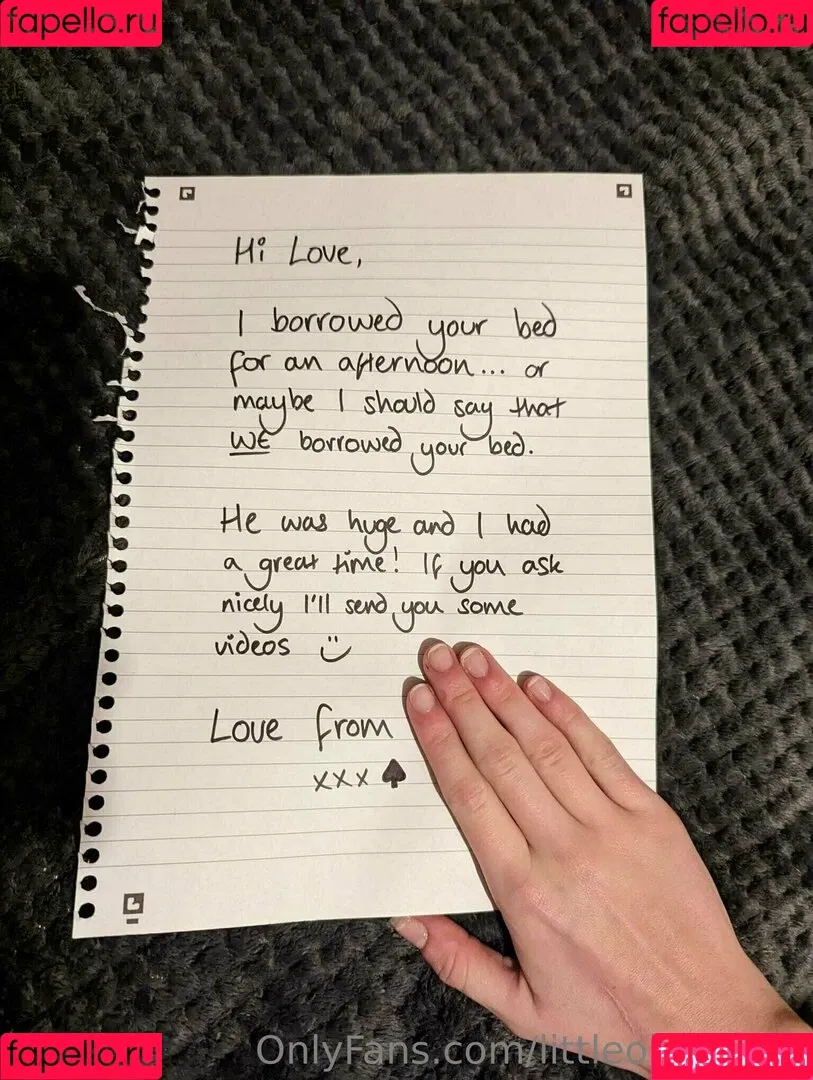 fapello.ru fapello.ru
Hi Love,
I borrowed your bed
for an afternoon... or
maybe I should say that
WE borrowed your bed.
He was huge and I had
a great time! If you ask
nicely I'll send you some
videos :)
Love from
xxx ♠
fapello.ru OnlyFans.com/littleo fapello.ru